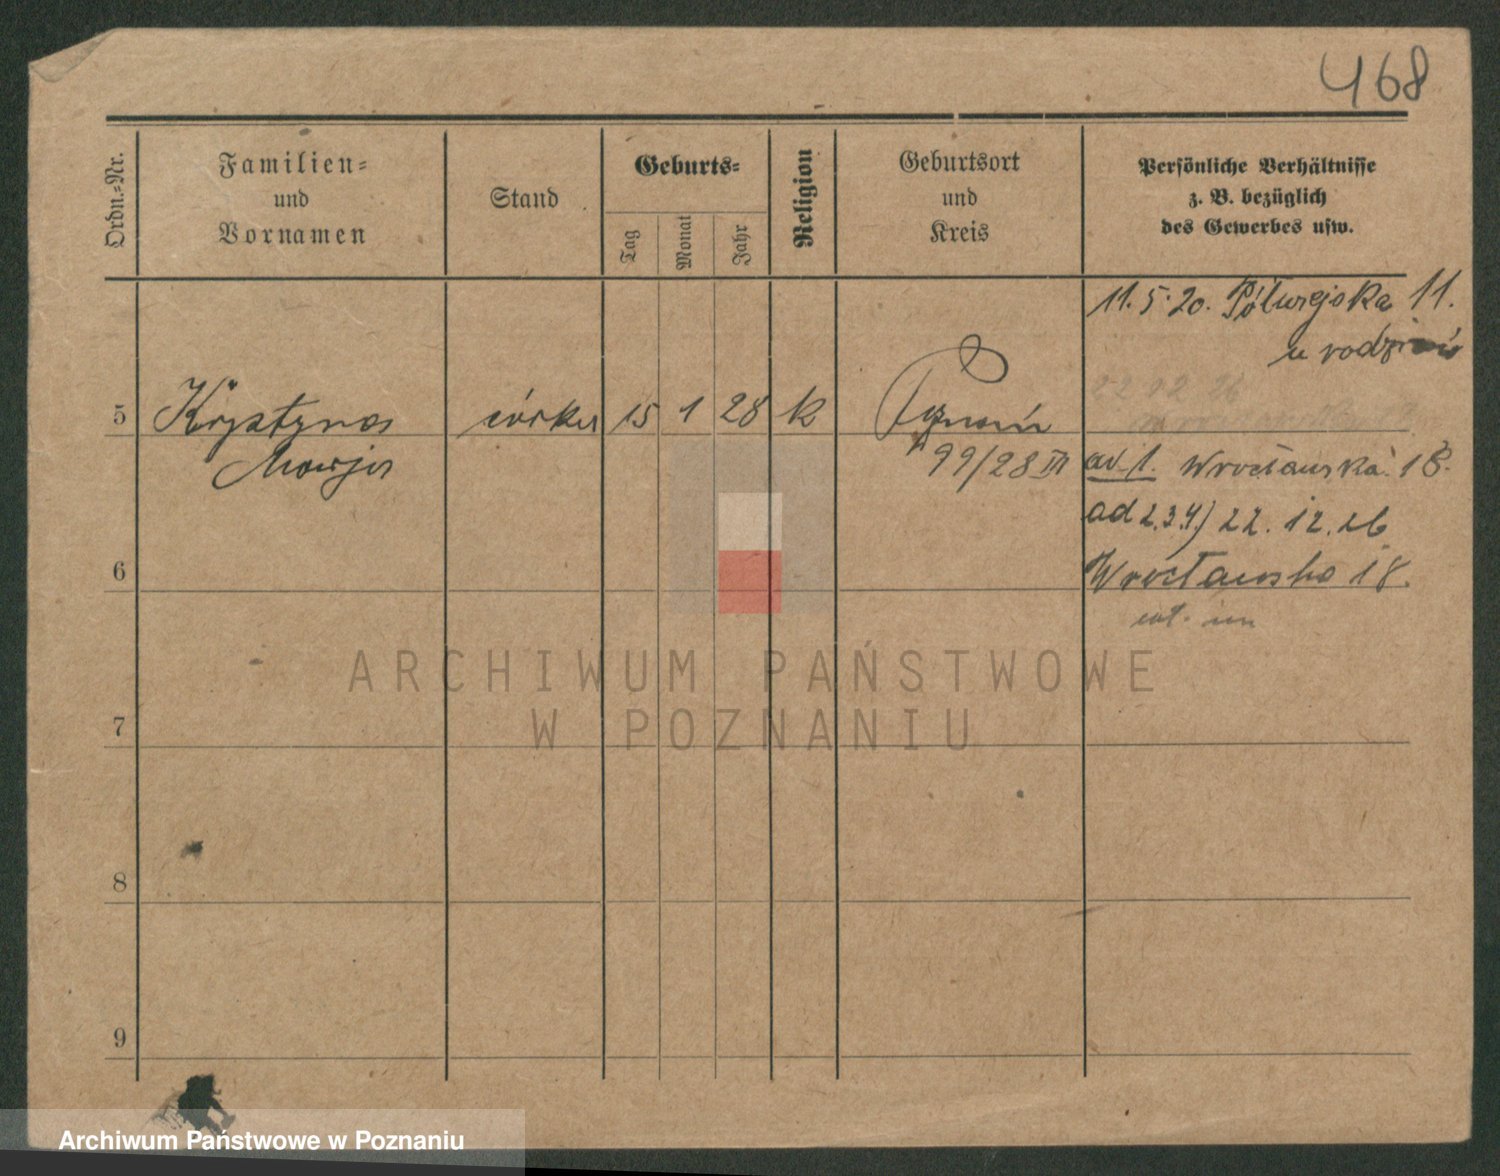 468
Ordn.-Nr.
Familien-
und
Vornamen
Stand
Geburts-
Tag
Monat
Jahr
Religion
Geburtsort
und
Kreis
Persönliche Verhältnisse
z. B. bezüglich
des Gewerbes usw.
11.5.20. Półwiejska 11.
u
22 12 26
5 Krystyna córka 15 1 28 k Poznań
Marja
99/28 III ad 1. Wrocławska 18.
ad 2.3.4.) 22.12.26
6 Wrocławska 18.
7
8
9
ARCHIWUM PAŃSTWOWE
W POZNANIU
Archiwum Państwowe w Poznaniu